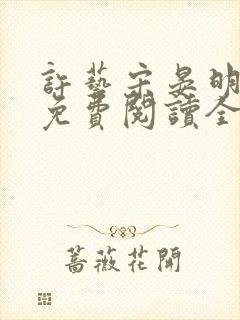 許藝宋晏明
免費閱讀全
薔薇花開